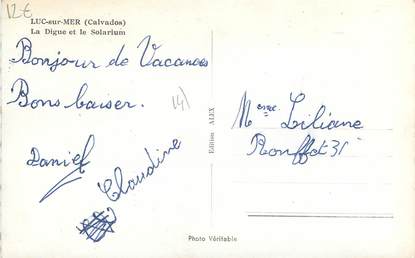 12€
LUC-sur-MER (Calvados)
La Digue et le Solarium
Bonjour de Vacances
Bons baiser.
14)
Daniel
Claudine
Edition ALEX
Mme Liliane
Photo Véritable